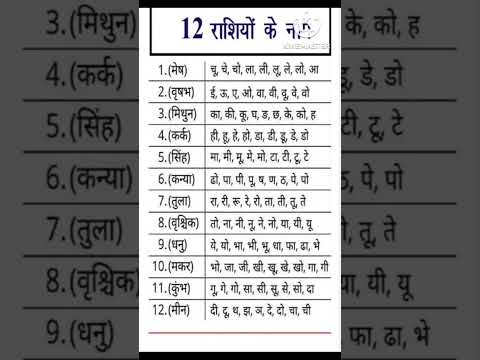 12 राशियों के
1.(मेष) चू, चे, चो, ला, ली, लू, ले, लो, आ
2.(वृषभ) ई, ऊ, ए, ओ, वा, वी, वू, वे, वो
3.(मिथुन) का, की, कू, घ, ङ, छ, के, को, ह
4.(कर्क) ही, हू, हे, हो, डा, डी, डू, डे, डो
5.(सिंह) मा, मी, मू, मे, मो, टा, टी, टू, टे
6.(कन्या) ढो, पा, पी, पू, ष, ण, ठ, पे, पो
7.(तुला) रा, री, रू, रे, रो, ता, ती, तू, ते
8.(वृश्चिक) तो, ना, नी, नू, ने, नो, या, यी, यू
9.(धनु) ये, यो, भा, भी, भू, धा, फा, ढा, भे
10.(मकर) भो, जा, जी, खी, खू, खे, खो, गा, गी
11.(कुंभ) गू, गे, गो, सा, सी, सू, से, सो, दा
12.(मीन) दी, दू, थ, झ, ञ, दे, दो, चा, ची
3.(मिथुन)
4.(कर्क)
5.(सिंह)
6.(कन्या)
7.(तुला)
8.(वृश्चिक)
9.(धनु)
के, को, ह
डे, डो
टू, टे
पे, पो
तू, ते
या, यी, यू
फा, ढा, भे